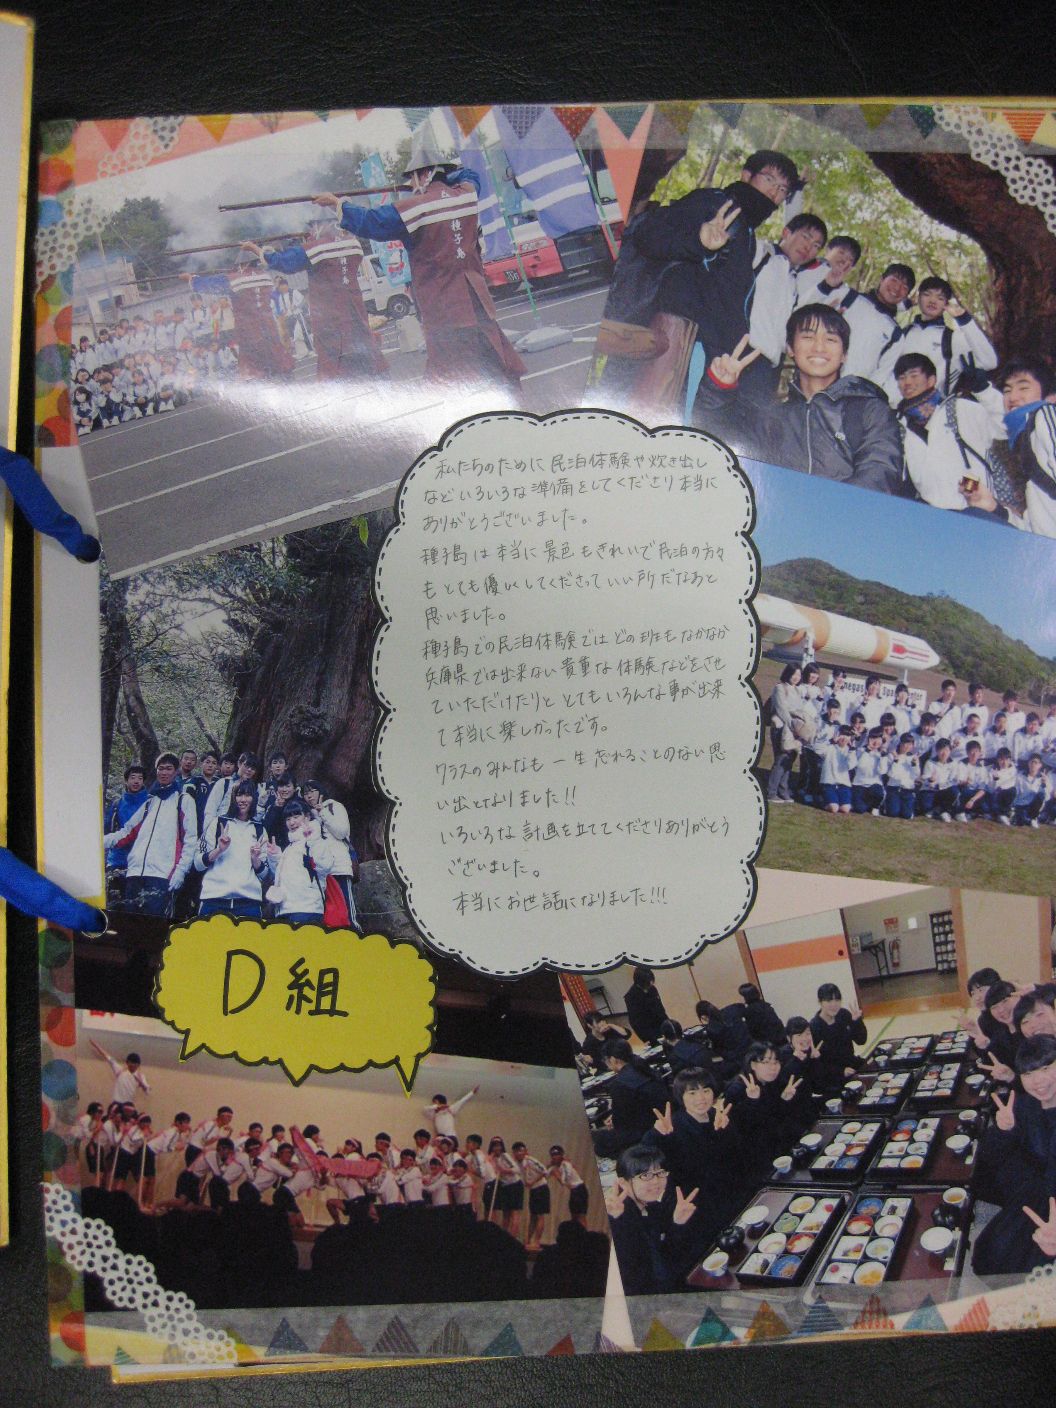 種子島
私たちのために民泊体験や炊き出し
などいろいろな準備をしてくださり本当に
ありがとうございました。
種子島は本当に景色もきれいで民泊の方々
もとても優しくしてくださっていい所だなあと
思いました。
種子島での民泊体験ではどの班もなかなか
兵庫県では出来ない貴重な体験などをさせ
ていただけたりととてもいろんな事が出来
て本当に楽しかったです。
クラスのみんなも一生忘れることのない思
い出となりました!!
いろいろな計画を立ててくださりありがとう
ございました。
本当にお世話になりました!!!
D組